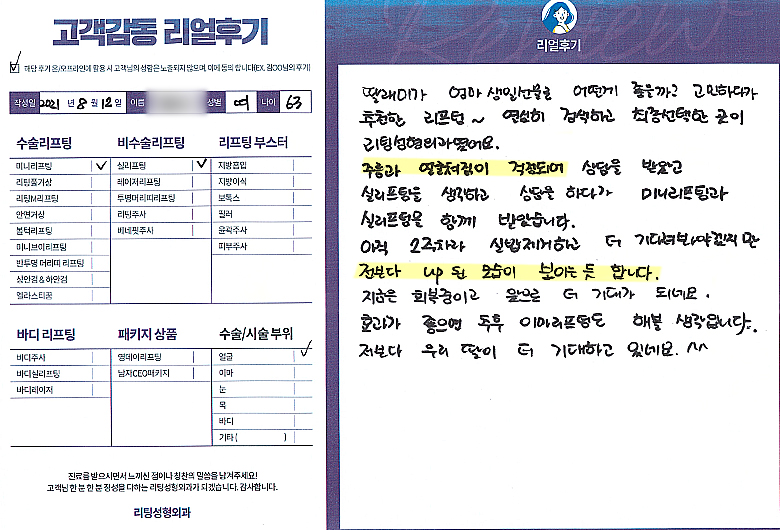 고객감동 리얼후기
해당 후기 온/오프라인에 활용 시 고객님의 성함은 노출되지 않으며, 이에 동의 합니다(EX. 김OO님의 후기)
작성일 2021 년 8 월 12 일 이름 성별 여 나이 63
수술리프팅
미니리프팅
리팅풀거상
리팅M리프팅
안면거상
봄턱리프팅
미니브이리프팅
반투명 머리띠 리프팅
상안검 & 하안검
엘라스티꿈
비수술리프팅
실리프팅
레이저리프팅
투명머리띠리프팅
리팅주사
베네핏주사
리프팅 부스터
지방흡입
지방이식
보톡스
필러
윤곽주사
피부주사
바디 리프팅
바디주사
바디실리프팅
바디레이저
패키지 상품
영데이리프팅
남자CEO패키지
수술/시술 부위
얼굴
이마
눈
목
바디
기타 ( )
진료를 받으시면서 느끼신 점이나 칭찬의 말씀을 남겨주세요!
고객님 한 분 한 분 정성을 다하는 리팅성형외과가 되겠습니다. 감사합니다.
리팅성형외과
Review
리얼후기
딸래미가 엄마 생일선물로 어떤게 좋을까? 고민하다가
추천한 리프팅 ~ 열심히 검색하고 최종선택한 곳이
리팅성형외과였어요.
주름과 얼굴처짐이 걱정되어 상담을 받았고
실리프팅을 생각하고 상담을 하다가 미니리프팅과
실리프팅을 함께 받았습니다.
아직 2주차라 실밥제거하고 더 기다려봐야겠지만
전보다 up 된 모습이 보이는 듯 합니다.
지금은 회복중이고 앞으로 더 기대가 되네요.
효과가 좋으면 추후 이마리프팅도 해볼 생각입니다.
저보다 우리 딸이 더 기대하고 있네요. ^^